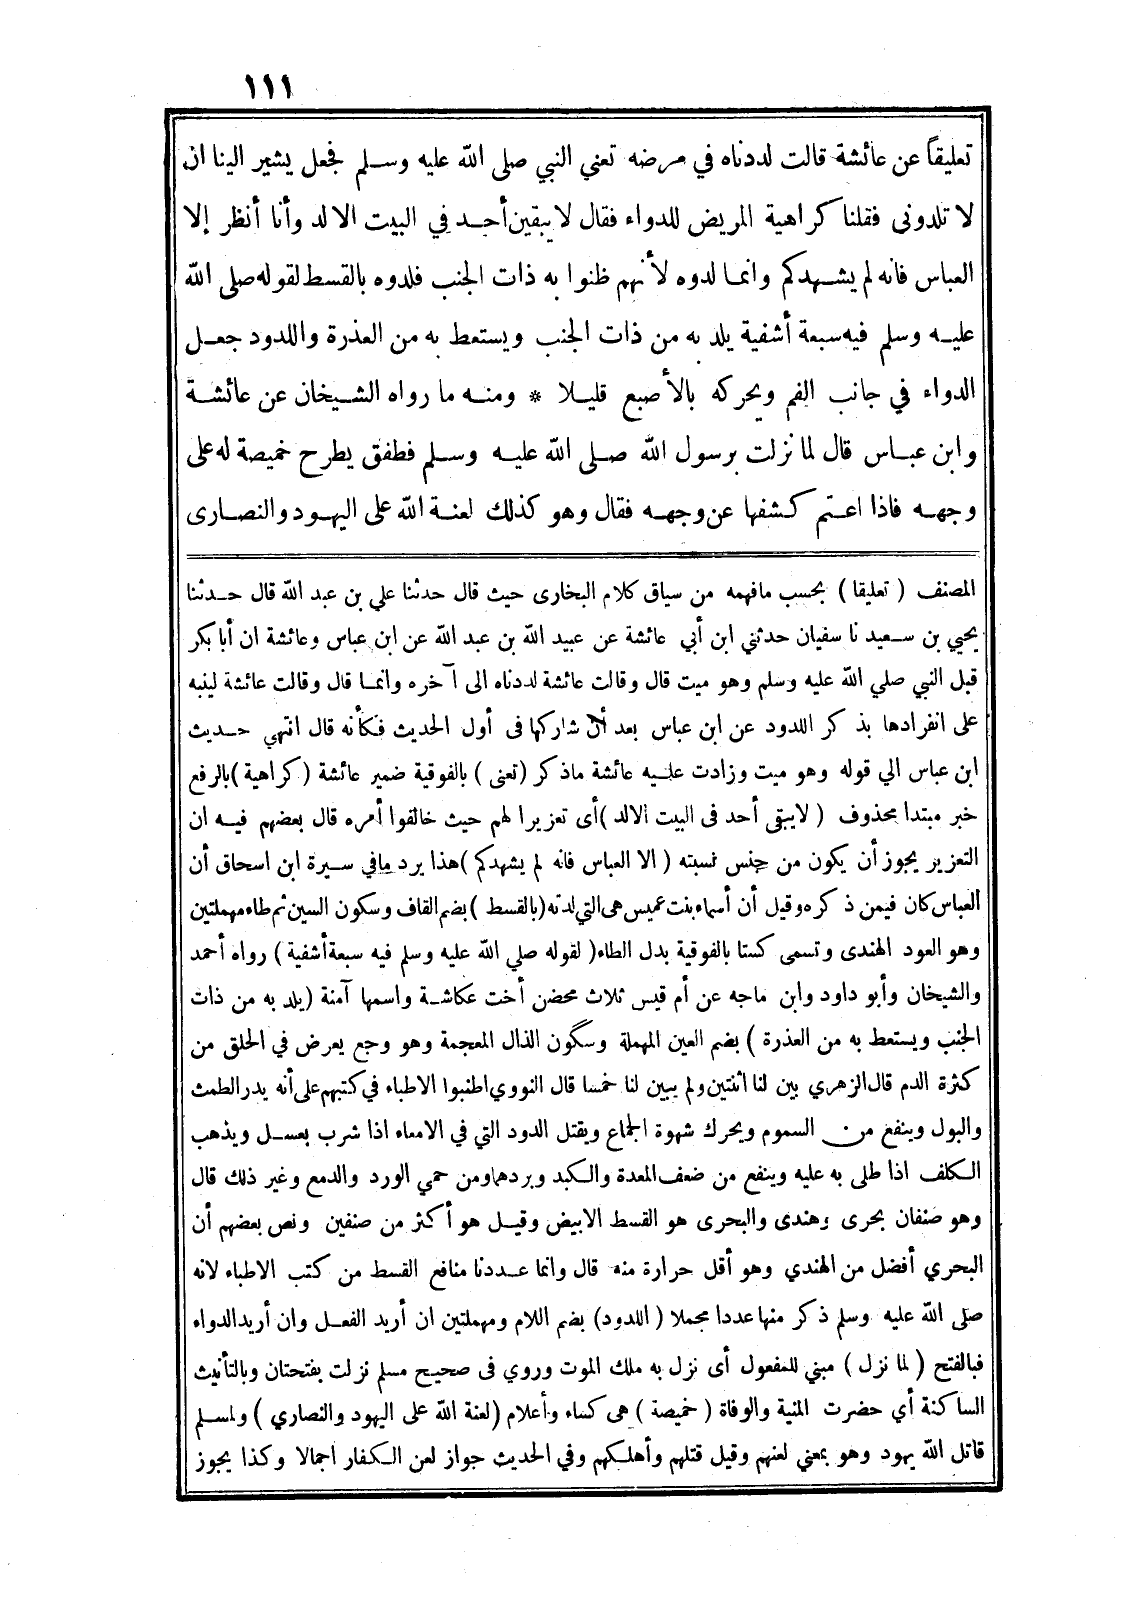 ١١١
تعليقاً عن عائشة قالت لددناه في مرضه تعني النبي صلى الله عليه وسلم فجعل يشير الينا ان
لا تلدونى فقلنا كراهية المريض للدواء فقال لا يبقين أحد في البيت الا لد وأنا أنظر إلا
العباس فانه لم يشهدكم وانما لدوه لأنهم ظنوا به ذات الجنب فلدوه بالقسط لقوله صلى الله
عليه وسلم فيه سبعة أشفية يلد به من ذات الجنب ويستعط به من العذرة واللدود جعل
الدواء في جانب الفم ويحركه بالأصبع قليلا * ومنه ما رواه الشيخان عن عائشة
وابن عباس قال لما نزلت برسول الله صلى الله عليه وسلم فطفق يطرح خميصة له على
وجهه فاذا اعتم كشفها عن وجهه فقال وهو كذلك لعنة الله على اليهود والنصارى
المصنف ( تعليقا ) بحسب مافهمه من سياق كلام البخارى حيث قال حدثنا علي بن عبد الله قال حدثنا
يحيي بن سعيد نا سفيان حدثني ابن أبي عائشة عن عبيد الله بن عبد الله عن ابن عباس وعائشة ان أبا بكر
قبل النبي صلي الله عليه وسلم وهو ميت قال وقالت عائشة لددناه الى آخره وانما قال وقالت عائشة لينبه
على انفرادها بذكر اللدود عن ابن عباس بعد أن شاركها فى أول الحديث فكأنه قال انتهي حديث
ابن عباس الي قوله وهو ميت وزادت عليه عائشة ماذكر (تعنى ) بالفوقية ضمير عائشة (كراهية) بالرفع
خبر مبتدا محذوف ( لايبقى أحد فى البيت الالد )أى تعزيرا لهم حيث خالفوا أمره قال بعضهم فيه ان
التعزير يجوز أن يكون من جنس نسبته ( الا العباس فانه لم يشهدكم )هذا يرد مافي سيرة ابن اسحاق أن
العباس كان فيمن ذكره وقيل أن أسماء بنت عميس هى التي لدته (بالقسط ) بضم القاف وسكون السين ثم طاء مهملتين
وهو العود الهندى وتسمى كستا بالفوقية بدل الطاء( لقوله صلي الله عليه وسلم فيه سبعة أشفية ) رواه أحمد
والشيخان وأبو داود وابن ماجه عن أم قيس ثلاث محضن أخت عكاشة واسمها آمنة (يلد به من ذات
الجنب ويستعط به من العذرة ) بضم العين المهملة وسكون الذال المعجمة وهو وجع يعرض في الحلق من
كثرة الدم قال الزهري بين لنا اثنتين ولم يبين لنا خمسا قال النووي اطنبوا الاطباء في كتبهم على أنه يدر الطمث
والبول وينفع من السموم ويحرك شهوة الجماع ويقتل الدود التي في الامعاء اذا شرب بعسل ويذهب
الكلف اذا طلى به عليه وينفع من ضعف المعدة والكبد وبردهاومن حمي الورد والدمع وغير ذلك قال
وهو صنفان بحرى وهندى والبحرى هو القسط الابيض وقيل هو أكثر من صنفين ونص بعضهم أن
البحري أفضل من الهندي وهو أقل حرارة منه قال وانما عددنا منافع القسط من كتب الاطباء لانه
صلى الله عليه وسلم ذكر منها عددا مجملا ( اللدود) بضم اللام ومهملتين ان أريد الفعل وان أريد الدواء
فبالفتح ( لما نزل ) مبني للمفعول أى نزل به ملك الموت وروي فى صحيح مسلم نزلت بفتحتان وبالتأنيث
الساكنة أي حضرت المنية والوفاة ( خميصة ) هى كساء وأعلام (لعنة الله على اليهود والنصاري ) ولمسلم
قاتل الله يهود وهو بمعني لعنهم وقيل قتلهم وأهلكهم وفي الحديث جواز لعن الكفار اجمالا وكذا يجوز